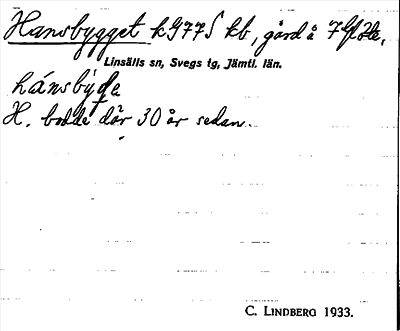 Hansbygget kG77S kb, gård å
Linsälls sn, Svegs tg, Jämtl. län.
hánsby̆ge
H. bodde där 30 år sedan.
C. LINDBERG 1933.